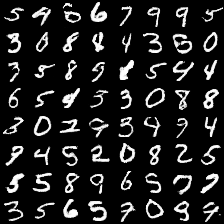 5 9 6 6 7 9 9 5
3 0 8 8 4 3 5 0
7 5 8 9 5 4 4
6 5 5 3 0 8 8
3 0 2 9 3 9 9 4
9 4 5 2 0 8 2 5
5 5 8 9 6 5 7 7
3 5 6 5 7 0 9 3